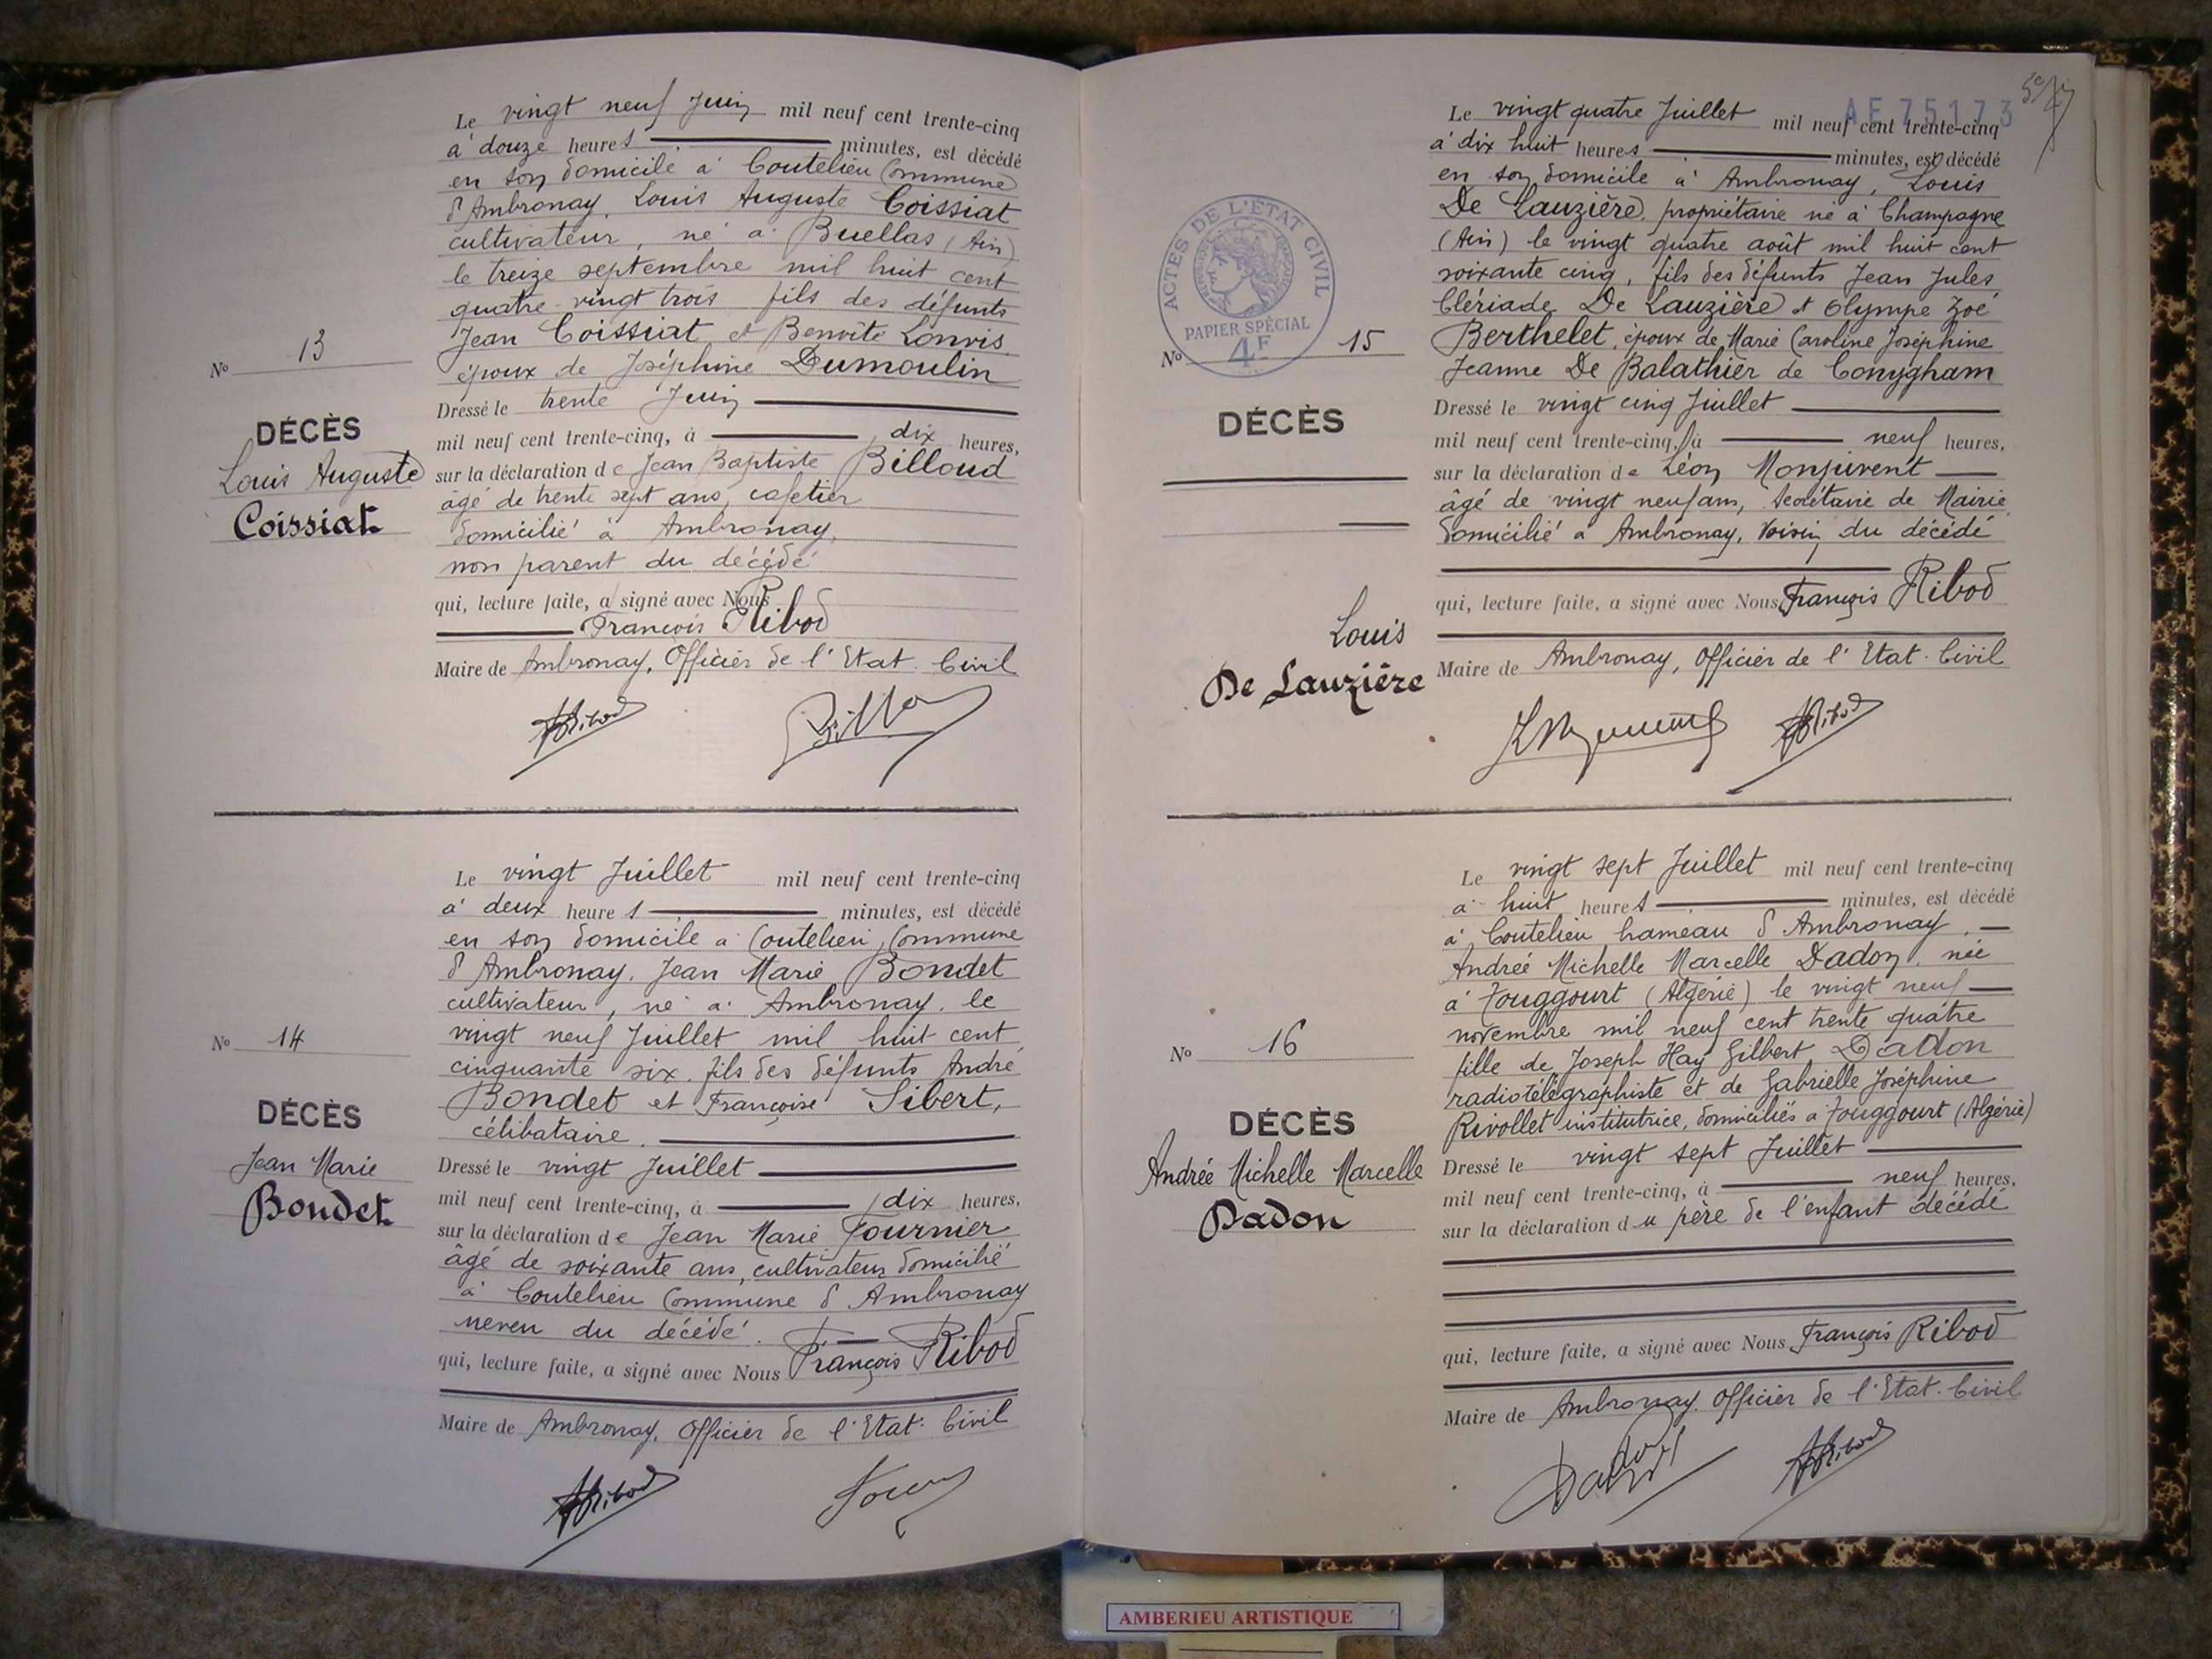 Le vingt neuf Juin mil neuf cent trente-cinq
à douze heures minutes, est décédé
en son domicile à Coutelieu Commune
d'Ambronay, Louis Auguste Coissiat
cultivateur, né à Buellas (Ain)
le treize septembre mil huit cent
quatre-vingt trois fils des défunts
Jean Coissiat et Benoîte
époux de Joséphine Dumoulin
Nº 13
DÉCÈS
Louis Auguste
Coissiat
Dressé le trente Juin
mil neuf cent trente-cinq, à dix heures,
sur la déclaration de Jean Baptiste Billoud
âgé de trente sept ans, cafetier
domicilié à Ambronay,
non parent du décédé
qui, lecture faite, a signé avec Nous
François Ribod
Maire de Ambronay, Officier de l'Etat-Civil
Le vingt Juillet mil neuf cent trente-cinq
à deux heures minutes, est décédé
en son domicile à Coutelieu, Commune
d'Ambronay, Jean Marie Bondet
cultivateur, né à Ambronay, le
vingt neuf Juillet mil huit cent
cinquante six, fils des défunts André
Bondet et Françoise Sibert,
célibataire.
Nº 14
DÉCÈS
Jean Marie
Bondet
Dressé le vingt Juillet
mil neuf cent trente-cinq, à dix heures,
sur la déclaration de Jean Marie Fournier
âgé de soixante ans, cultivateur domicilié
à Coutelieu Commune d'Ambronay
neveu du décédé.
qui, lecture faite, a signé avec Nous François Ribod
Maire de Ambronay, Officier de l'Etat-Civil
AF 75173
Le vingt quatre Juillet mil neuf cent trente-cinq
à dix huit heures minutes, est décédé
en son domicile à Ambronay, Louis
De Lauzière, propriétaire né à Champagne
(Ain) le vingt quatre août mil huit cent
soixante cinq, fils des défunts Jean Jules
Clériade De Lauzière et Olympe Zoé
Berthelet, époux de Marie Caroline Joséphine
Jeanne De Balathier de Conygham
ACTES DE L'ETAT CIVIL
PAPIER SPÉCIAL
4F
Nº 15
DÉCÈS
Louis
De Lauzière
Dressé le vingt cinq Juillet
mil neuf cent trente-cinq, à neuf heures,
sur la déclaration de Léon Monjuvent
âgé de vingt neuf ans, Secrétaire de Mairie
domicilié à Ambronay, voisin du décédé
qui, lecture faite, a signé avec Nous François Ribod
Maire de Ambronay, Officier de l'Etat-Civil
Le vingt sept Juillet mil neuf cent trente-cinq
à huit heures minutes, est décédé
à Coutelieu hameau d'Ambronay,
Andrée Michelle Marcelle Dadon, née
à Touggourt (Algérie) le vingt neuf
novembre mil neuf cent trente quatre
fille de Joseph Haÿ Gilbert Dadon
radiotélégraphiste et de Gabrielle Joséphine
Rivollet institutrice, domiciliés à Touggourt (Algérie)
Nº 16
DÉCÈS
Andrée Michelle Marcelle
Dadon
Dressé le vingt sept Juillet
mil neuf cent trente-cinq, à neuf heures,
sur la déclaration du père de l'enfant décédé
qui, lecture faite, a signé avec Nous François Ribod
Maire de Ambronay, Officier de l'Etat-Civil
AMBERIEU ARTISTIQUE